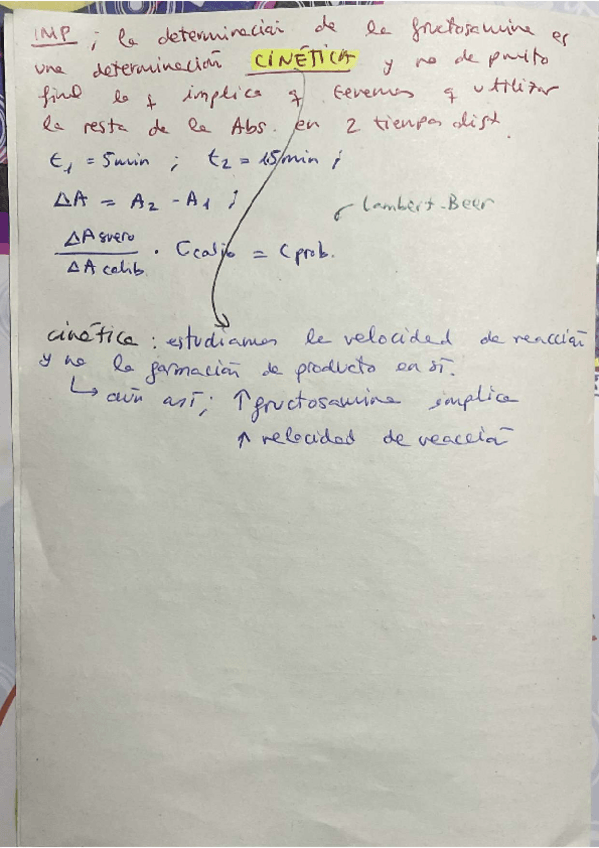 IMP ; la determinación de la fructosamina es
una determinación CINÉTICA y no de punto
final lo q implica q tenemos q utilizar
la resta de la Abs. en 2 tiempos dist.
t₁ = 5min ; t₂ = 15min ;
ΔA = A₂ - A₁ ;
Lambert-Beer
ΔA suero / ΔA calib. · C calib = C prob.
cinética : estudiamos la velocidad de reacción
y no la formación de producto en sí.
↳ aún así ; ↑ fructosamina implica
↑ velocidad de reacción